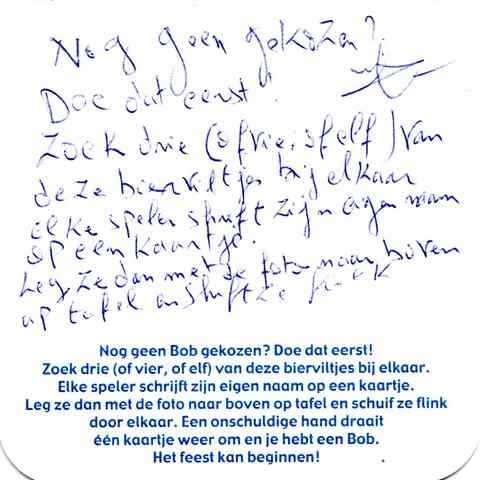 Nog geen gekozen?
Doe dat eerst!
Zoek drie (of vier, of elf) van
deze bierviltjes bij elkaar
elke speler schrift zijn eigen naam
op een kaartje.
Leg ze dan met de foto naar boven
op tafel en shift ze
Nog geen Bob gekozen? Doe dat eerst!
Zoek drie (of vier, of elf) van deze bierviltjes bij elkaar.
Elke speler schrijft zijn eigen naam op een kaartje.
Leg ze dan met de foto naar boven op tafel en schuif ze flink
door elkaar. Een onschuldige hand draait
één kaartje weer om en je hebt een Bob.
Het feest kan beginnen!